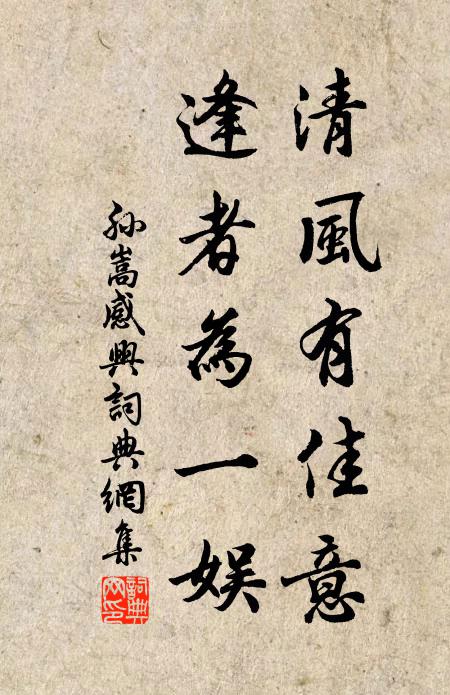 清風有佳意
逢者為一娛
孫嵩感興詞典網集
詞典網印